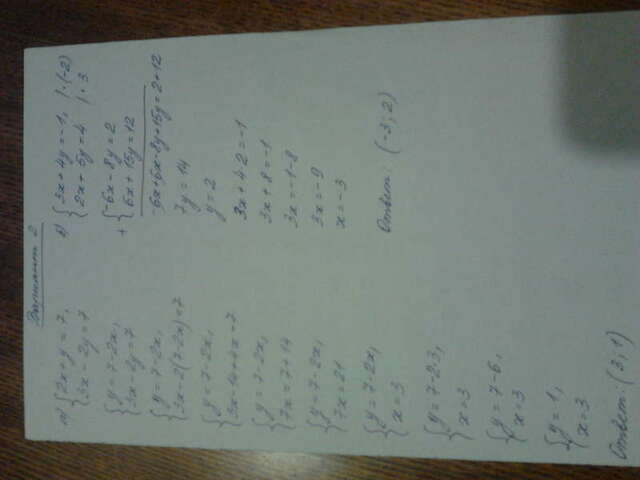 Вариант 2
а) {2x+y=7,
3x-2y=7
{y=7-2x,
3x-2y=7
{y=7-2x,
3x-2(7-2x)=7
{y=7-2x,
3x-14+4x=7
{y=7-2x,
7x=7+14
{y=7-2x,
7x=21
{y=7-2x,
x=3
{y=7-2·3,
x=3
{y=7-6,
x=3
{y=1,
x=3
Ответ: (3;1)
б) {3x+4y=-1, |·(-2)
2x+5y=4 |·3
+{-6x-8y=2
6x+15y=12
-6x+6x-8y+15y=2+12
7y=14
y=2
3x+4·2=-1
3x+8=-1
3x=-1-8
3x=-9
x=-3
Ответ: (-3;2)